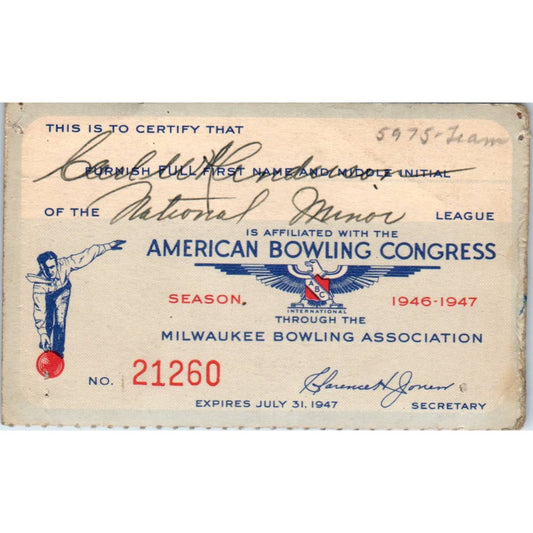 THIS IS TO CERTIFY THAT
5975-Team
FURNISH FULL FIRST NAME AND MIDDLE INITIAL
OF THE National Minor LEAGUE
IS AFFILIATED WITH THE
AMERICAN BOWLING CONGRESS
ABC
SEASON. 1946-1947
INTERNATIONAL
THROUGH THE
MILWAUKEE BOWLING ASSOCIATION
NO. 21260
Clarence H Jonen
EXPIRES JULY 31, 1947 SECRETARY